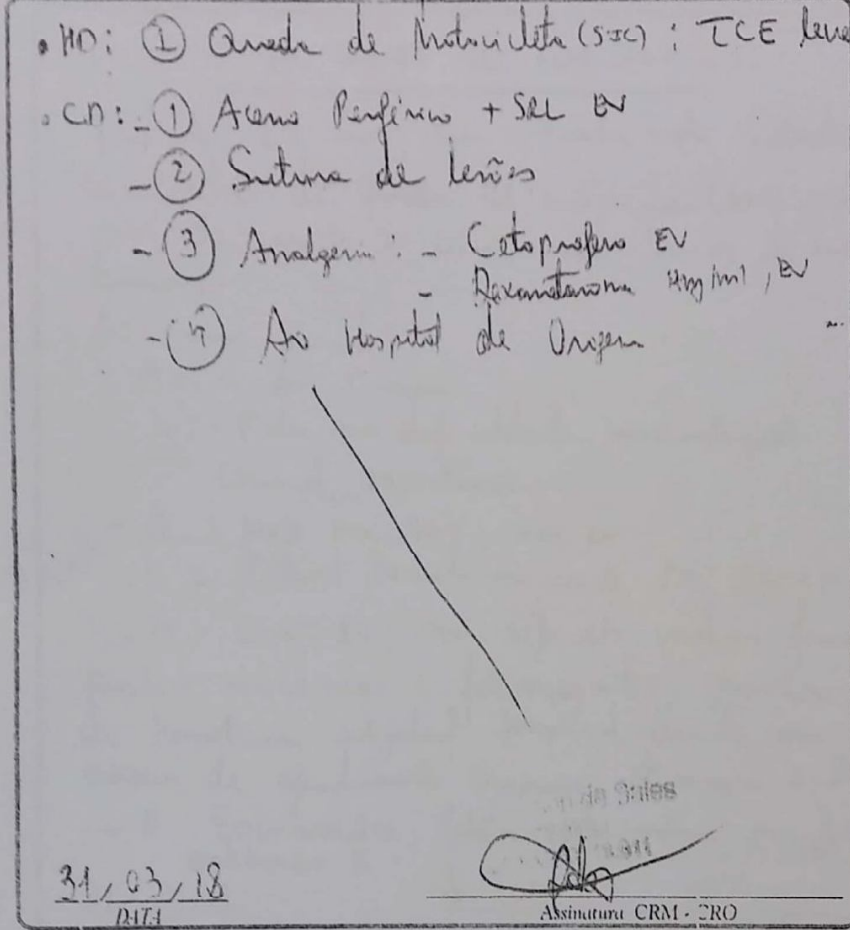 • HD: ① Queda de Motocicleta (SIC) : TCE leve
• CD: - ① Acesso Periférico + SRL EV
- ② Sutura de lesões
- ③ Analgesia: - Cetoprofeno EV
- Dexametasona 4mg/ml, EV
- ④ Ao Hospital de Origem
de Sales
31/03/18
DATA
Assinatura CRM - CRO